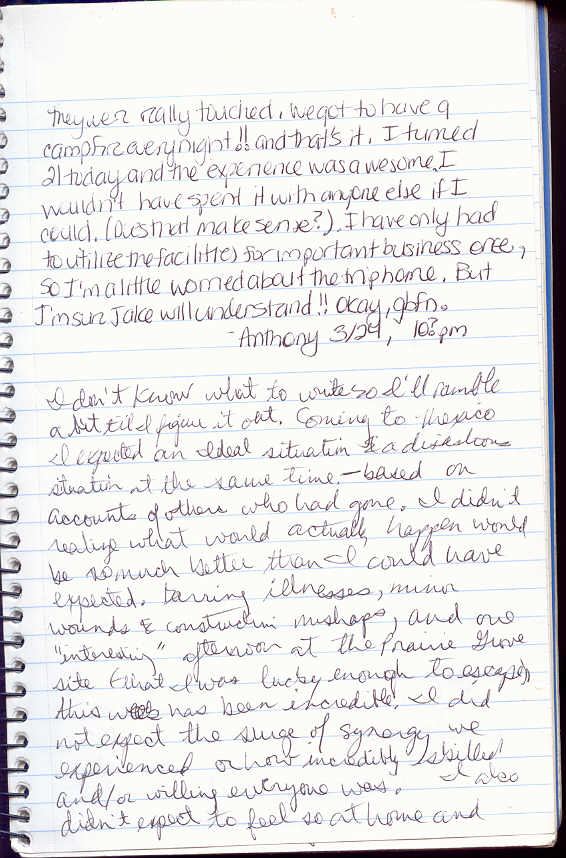 they were really touched. We got to have a
campfire every night!! and that's it. I turned
21 today and the experience was awesome. I
wouldn't have spent it with anyone else if I
could. (Does that make sense?). I have only had
to utilize the facilities for important business once,
so I'm a little worried about the trip home. But
I'm sure Jake will understand!! okay, gbfn.
- Anthony 3/24, 10:? pm
I don't know what to write so I'll ramble
a bit til I figure it out. Coming to Mexico
I expected an ideal situation & a disastrous
situation at the same time. - based on
accounts of others who had gone. I didn't
realize what would actually happen would
be so much better than I could have
expected. barring illnesses, minor
wounds & construction mishaps, and one
"interesting" afternoon at the Prairie Grove
site (that I was lucky enough to escape),
this week has been incredible. I did
not expect the surge of synergy we
experienced or how incredibly skilled
and/or willing everyone was. I also
didn't expect to feel so at home and